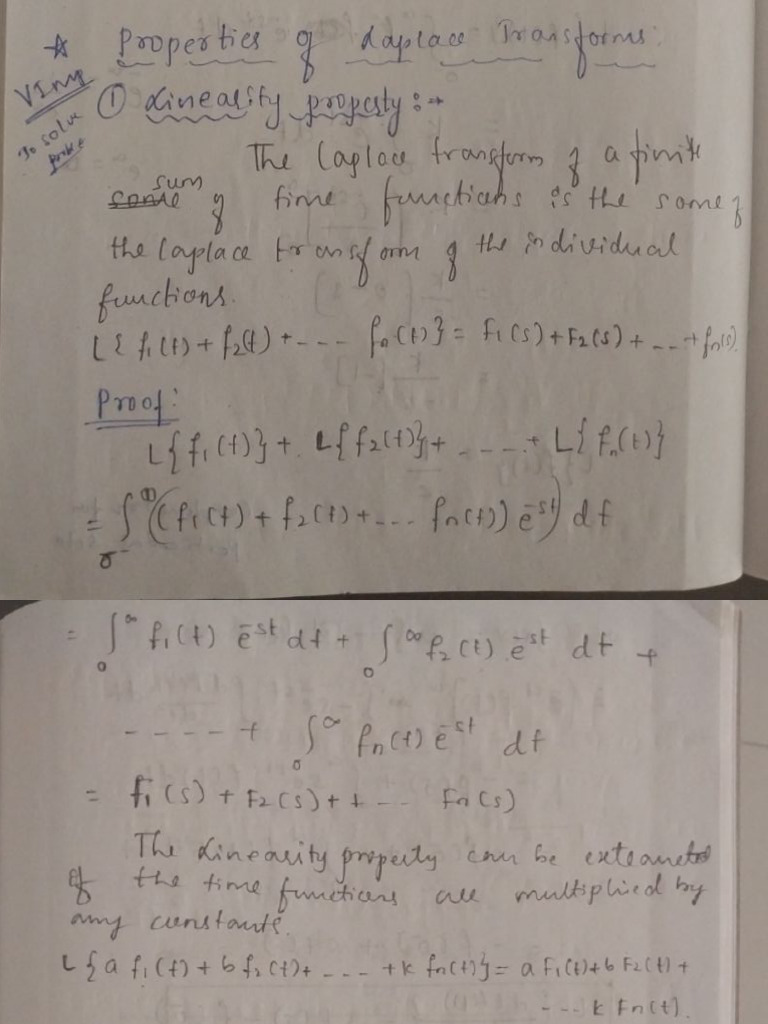 ☆ Properties of Laplace Transforms:
VImp
To solve prblm
① Linearity property :→
The Laplace transform of a finite
sum
some of time functions is the some of
the laplace transform of the individual
functions.
L{ f1(t) + f2(t) + ---- fn(t)} = F1(s) + F2(s) + -- + fn(s)
Proof:
L{f1(t)} + L{f2(t)} + - - - - + L{ fn(t)}
= ∫₀-^∞ ((f1(t) + f2(t) + --- fn(t)) e^-st) dt
= ∫₀^∞ f1(t) e^-st dt + ∫₀^∞ f2(t) e^-st dt +
- - - - - + ∫₀^∞ fn(t) e^-st dt
= f1(s) + F2(s) + + --- Fn(s)
The Linearity property can be
If the time functions are multiplied by
any constants.
L{a f1(t) + b f2(t) + - - - - + k fn(t)} = a F1(t) + b F2(t) +
--- k Fn(t).